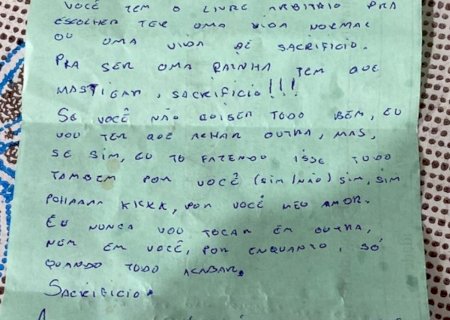 VOCÊ TEM O LIVRE ARBÍTRIO PRA
ESCOLHER TER UMA VIDA NORMAL
OU UMA VIDA DE SACRIFICIO.
PRA SER UMA RAINHA TEM QUE
MASTIGAR, SACRIFÍCIO!!!
SE VOCÊ NÃO QUISER TUDO BEM, EU
VOU TER QUE ACHAR OUTRA, MAS,
SE SIM, EU TO FAZENDO ISSE TUDO
TAMBEM POR VOCÊ (SIM/NÃO) SIM, SIM
KKKK, POR VOCÊ MEU AMOR.
EU NUNCA VOU TOCAR EM OUTRA,
NEM EM VOCÊ, POR ENQUANTO, SÓ
QUANDO TUDO ACABAR.
SACRIFICIO.